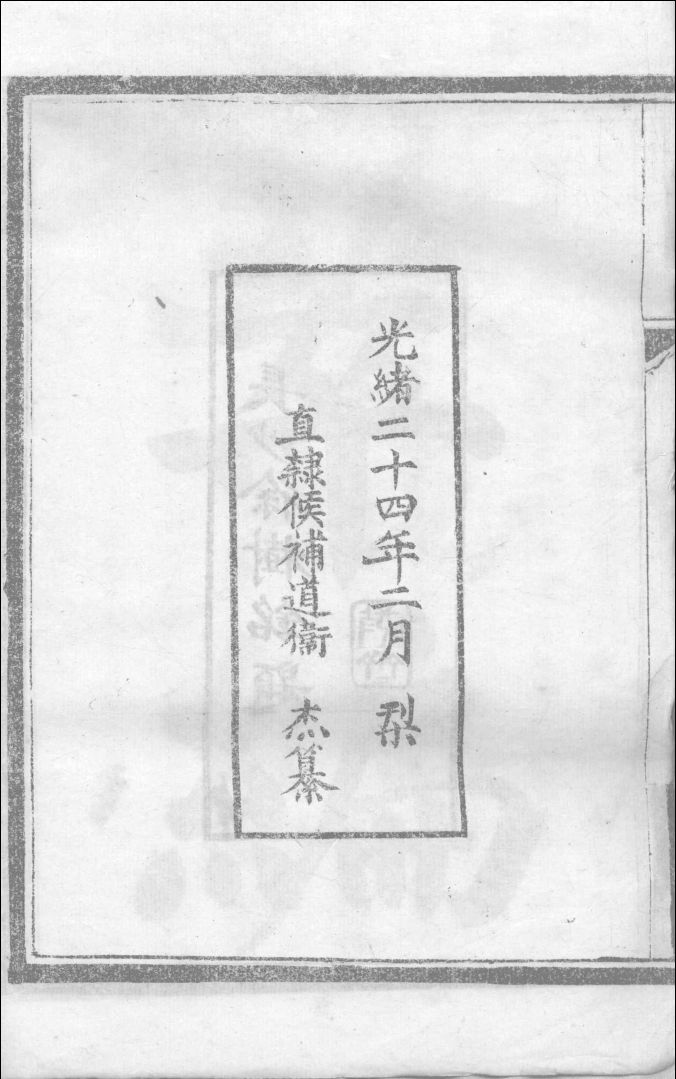 光緒二十四年二月
直隸候補道衛 杰纂